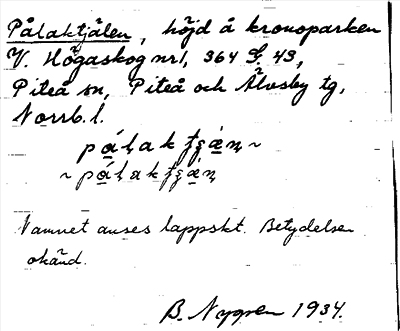 Pålaktjälen, höjd å kronoparken
V. Högaskog nr 1, 364 S. 43,
Piteå sn, Piteå och Älvsby tg,
Norrb. l.
Namnet anses lappskt. Betydelsen
okänd.
B. Nygren 1934.